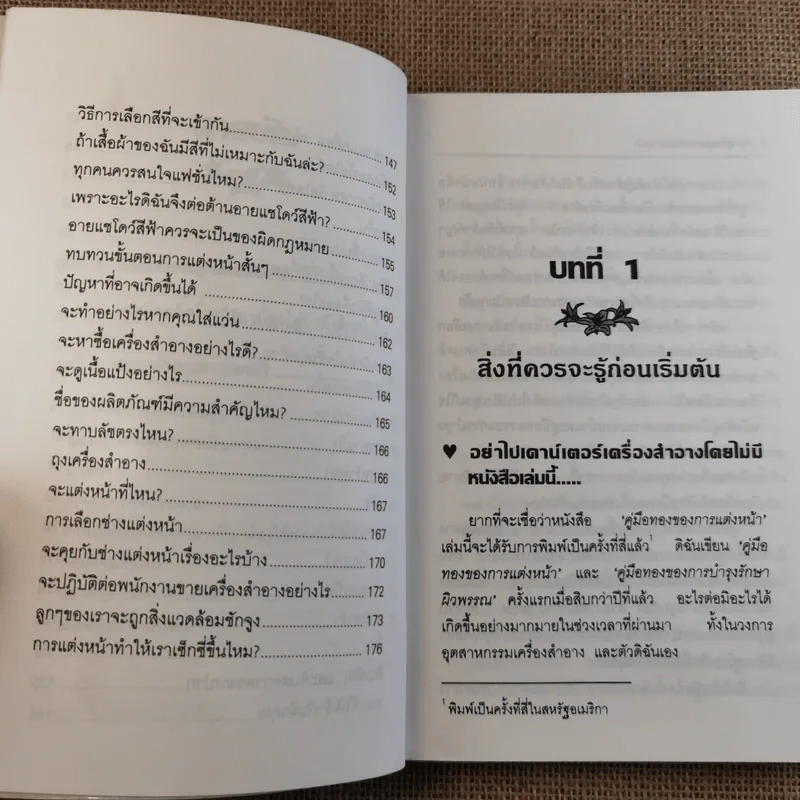 วิธีการเลือกสีที่จะเข้ากัน.......................... 147
ถ้าเสื้อผ้าของฉันมีสีที่ไม่เหมาะกับฉันล่ะ?............ 152
ทุกคนควรสนใจแฟชั่นไหม?.......................... 153
เพราะอะไรดิฉันจึงต่อต้านอายแชโดว์สีฟ้า?............ 154
อายแชโดว์สีฟ้าควรจะเป็นของผิดกฎหมาย............ 155
ทบทวนขั้นตอนการแต่งหน้าสั้นๆ.................... 157
ปัญหาที่อาจเกิดขึ้นได้ .......................... 160
จะทำอย่างไรหากคุณใส่แว่น........................ 162
จะหาซื้อเครื่องสำอางอย่างไรดี?.................... 163
จะดูเนื้อแป้งอย่างไร.............................. 164
ชื่อของผลิตภัณฑ์มีความสำคัญไหม?.................. 165
จะทาบลัชตรงไหน?................................ 166
ถุงเครื่องสำอาง.................................. 166
จะแต่งหน้าที่ไหน?................................ 167
การเลือกช่างแต่งหน้า.............................. 167
จะคุยกับช่างแต่งหน้าเรื่องอะไรบ้าง.................. 170
จะปฏิบัติต่อพนักงานขายเครื่องสำอางอย่างไร.......... 172
ลูกๆของเราจะถูกสิ่งแวดล้อมชักจูง.................. 173
การแต่งหน้าทำให้เราเซ็กซี่ขึ้นไหม?.................. 176
บทที่ 1
สิ่งที่ควรจะรู้ก่อนเริ่มต้น
♥ อย่าไปเคาน์เตอร์เครื่องสำอางโดยไม่มี
หนังสือเล่มนี้.....
ยากที่จะเชื่อว่าหนังสือ 'คู่มือทองของการแต่งหน้า'
เล่มนี้จะได้รับการพิมพ์เป็นครั้งที่สี่แล้ว¹ ดิฉันเขียน 'คู่มือ
ทองของการแต่งหน้า' และ 'คู่มือทองของการบำรุงรักษา
ผิวพรรณ' ครั้งแรกเมื่อสิบกว่าปีที่แล้ว อะไรต่อมิอะไรได้
เกิดขึ้นอย่างมากมายในช่วงเวลาที่ผ่านมา ทั้งในวงการ
อุตสาหกรรมเครื่องสำอาง และตัวดิฉันเอง
¹ พิมพ์เป็นครั้งที่สี่ในสหรัฐอเมริกา